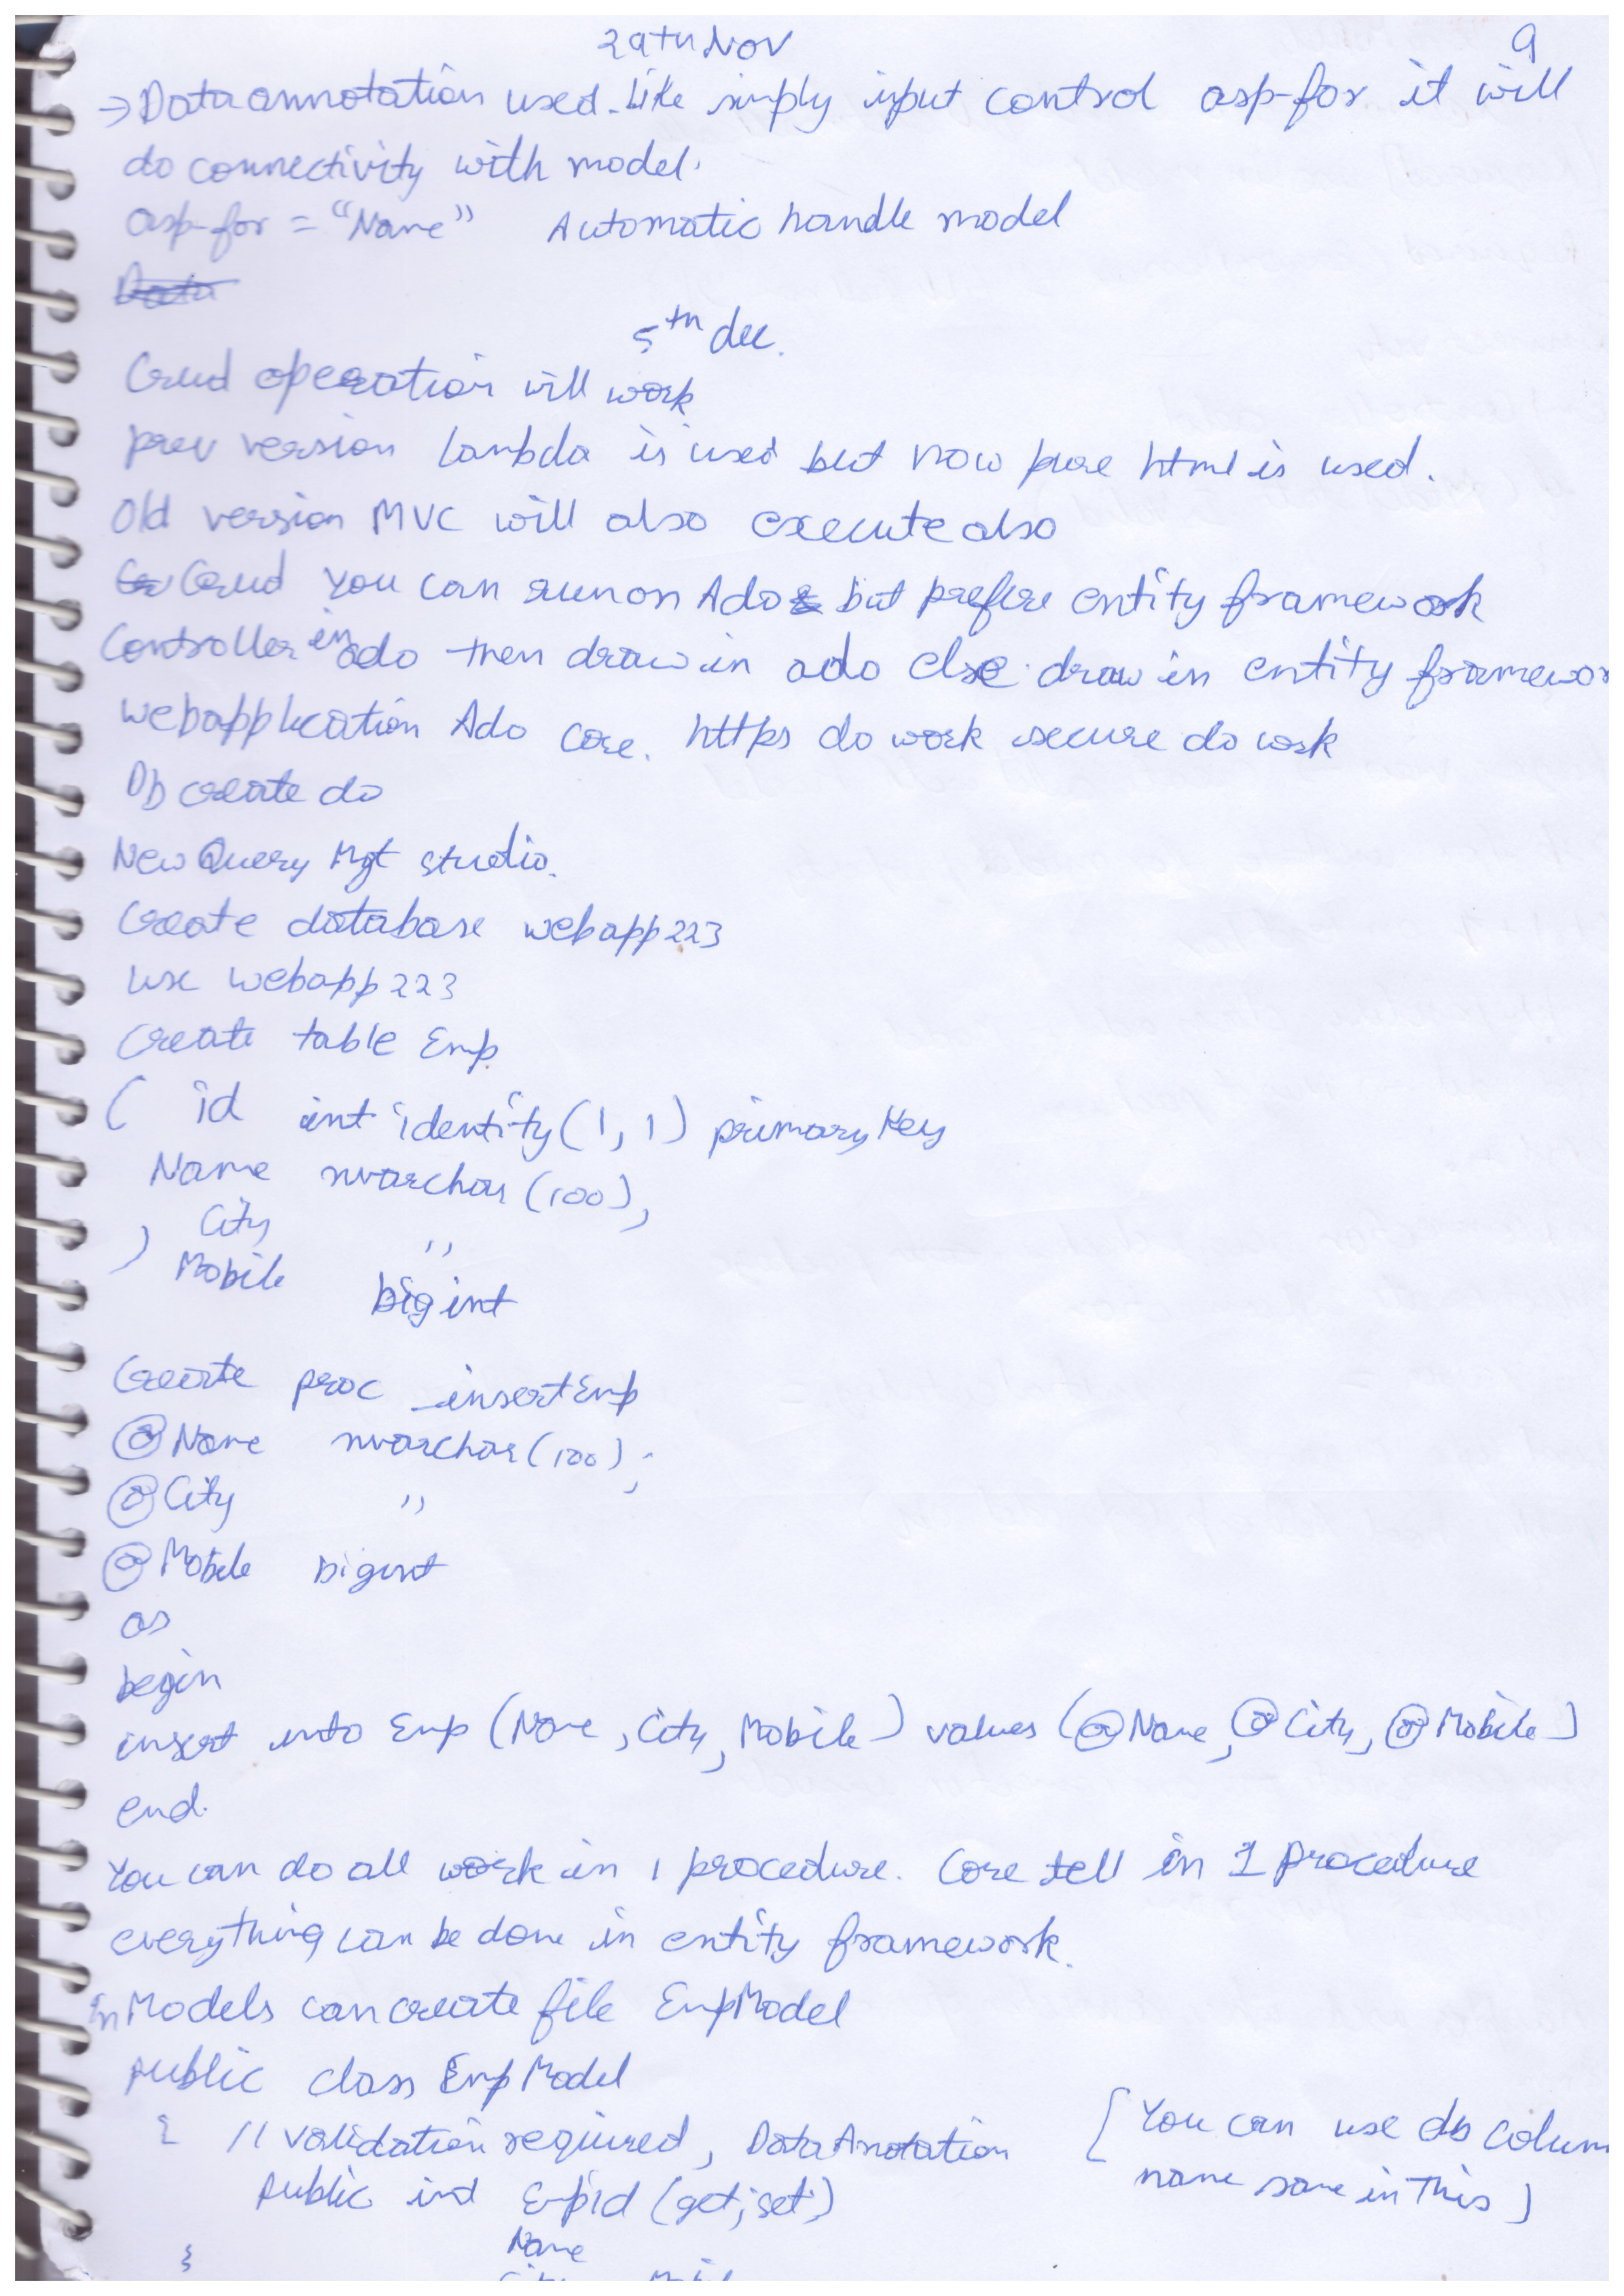 29th Nov 9
→ Data annotation used. Like simply input control asp-for it will
do connectivity with model.
asp-for = "Name" Automatic handle model
Data
5th dec.
Crud operation will work
prev version Lambda is used but now pure html is used.
Old version MVC will also execute also
Crud You can run on Ado but prefere entity framework
Controller in ado then draw in ado else draw in entity framewor
webapplication Ado core. https do work secure do work
Db create do
New Query Mgt studio.
Create database webapp223
use webapp223
Create table Emp
( id int identity(1,1) primary key
Name nvarchar(100),
City ,,
) Mobile bigint
Create proc insertEmp
@Name nvarchar(100),
@City ,,
@Mobile bigint
as
begin
insert into Emp (Name, City, Mobile) values (@Name, @City, @Mobile)
end.
You can do all work in 1 procedure. Core tell in 1 procedure
everything can be done in entity framework.
In Models can create file EmpModel
public class EmpModel
{ // validation required, DataAnotation [You can use db colum
public int Empid (get; set;) name same in this]
Name
}